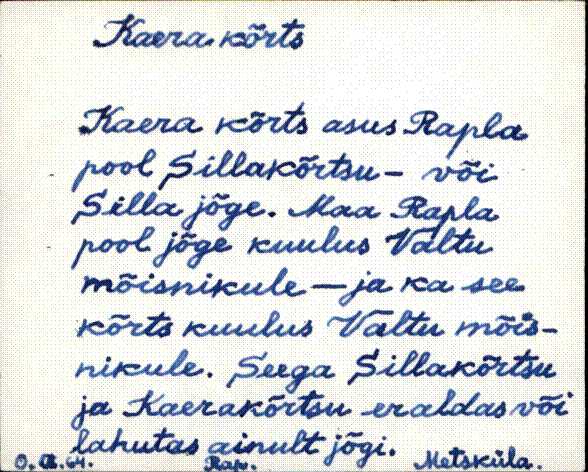 Kaera kõrts
Kaera kõrts asus Rapla
pool Sillakõrtsu- või
Silla jõge. Maa Rapla
pool jõge kuulus Valtu
mõisnikule — ja ka see
kõrts kuulus Valtu mõis-
nikule. Seega Sillakõrtsu
ja Kaerakõrtsu eraldas või
lahutas ainult jõgi.
64. Rap. Metsküla.